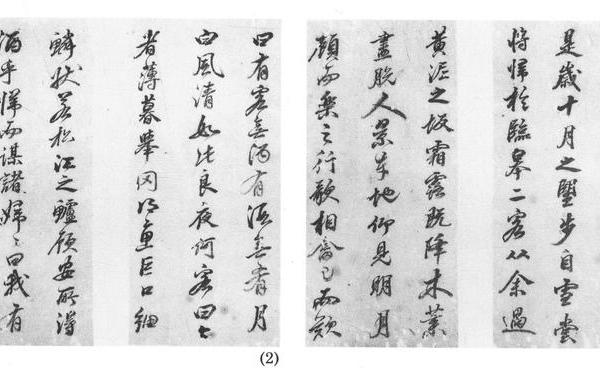 是歲十月之望步自雪堂
將歸於臨皋二客從余過
黃泥之坂霜露既降木葉
盡脫人景在地仰見明月
顧而樂之行歌相答已而歎
曰有客無酒有酒無肴月
白風清如此良夜何客曰今
者薄暮舉网得魚巨口細
鱗狀若松江之鱸顧安所得
酒乎歸而謀諸婦〻曰我有
(2)